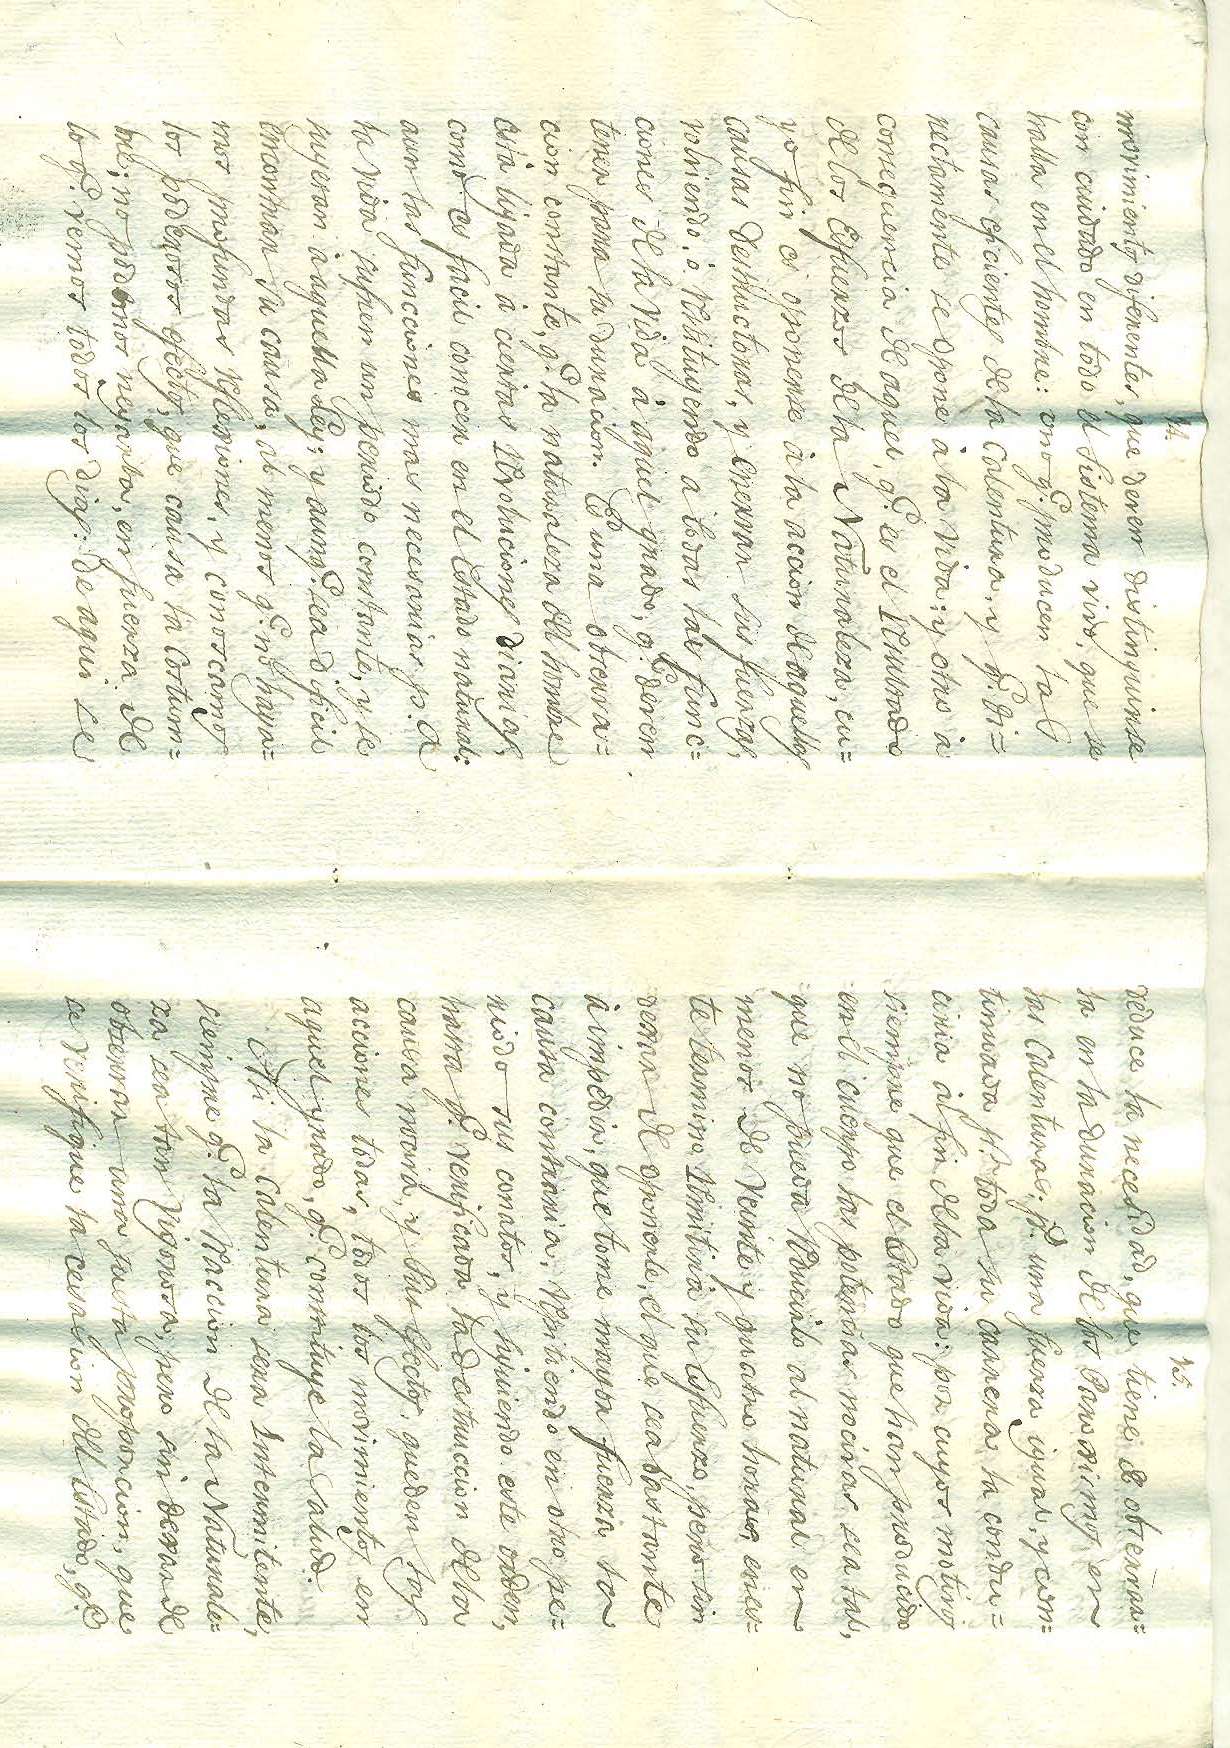 14.
movimiento diferentes, que deven distinguirse
con cuidado en todo el Sistema vivo, que se
halla en el hombre: uno q.e producen las
causas eficientes de la Calentura, y q.e di=
rectamente se opone à la vida; y otro à
consequencia de aquel, q.e es el Resultado
de los Esfuerzos de la Naturaleza, cu=
yo fin es oponerse à la accion de aquellas
causas destructoras, y exercer sus fuerzas,
volviendo, ò restituyendo a todas las func=
ciones de la vida à aquel grado, q.e deven
tener para su duracion. Es una observa=
cion constante, q.e la naturaleza del hombre
està ligada à ciertas Revoluciones diarias,
como es facil conocer en el Estado natural:
aun las funcciones mas necesarias p.a
la vida sufren un periodo constante, y se
sugetan à aquella Ley; y aunq.e sea dificil
encontrar su causa, al menos q.e no haga=
mos profundas reflexiones, y conoscamos
los poderosos efectos, que causa la costum=
bre; no podemos negarla, en fuerza de
lo q.e vemos todos los dias. De aqui se
15.
deduce la necesidad, que tiene de observar=
la en la duracion de los Paroxismos, en
las Calenturas; p.r una fuerza igual, y con=
tinuada p.r toda su carrera la condu=
ciria al fin de la vida: por cuyos motivos
siempre que el Estado que han producido
en el cuerpo las potencias nocivas sea tal,
que no pueda reducirlo al natural en
menos de veinte y quatro horas, en es=
te termino remitirà su esfuerzo, pero sin
dexar de oponerse, el que sea bastante
à impedir, que tome mayor fuerza la
causa contraria, repitiendo en otro pe=
riodo sus conatos, y siguiendo este orden,
hasta q.e verificada la destruccion de la
causa nociva, y sus efectos, queden las
acciones todas, todos los movimientos en
aquel grado, q.e constituye la salud.
Asi la Calentura serà Intermitente,
siempre q.e la Reaccion de la Naturale=
za sea tan vigorosa, pero sin dexar de
observar una justa proporcion, que
se verifique la cesacion del Estado, q.e